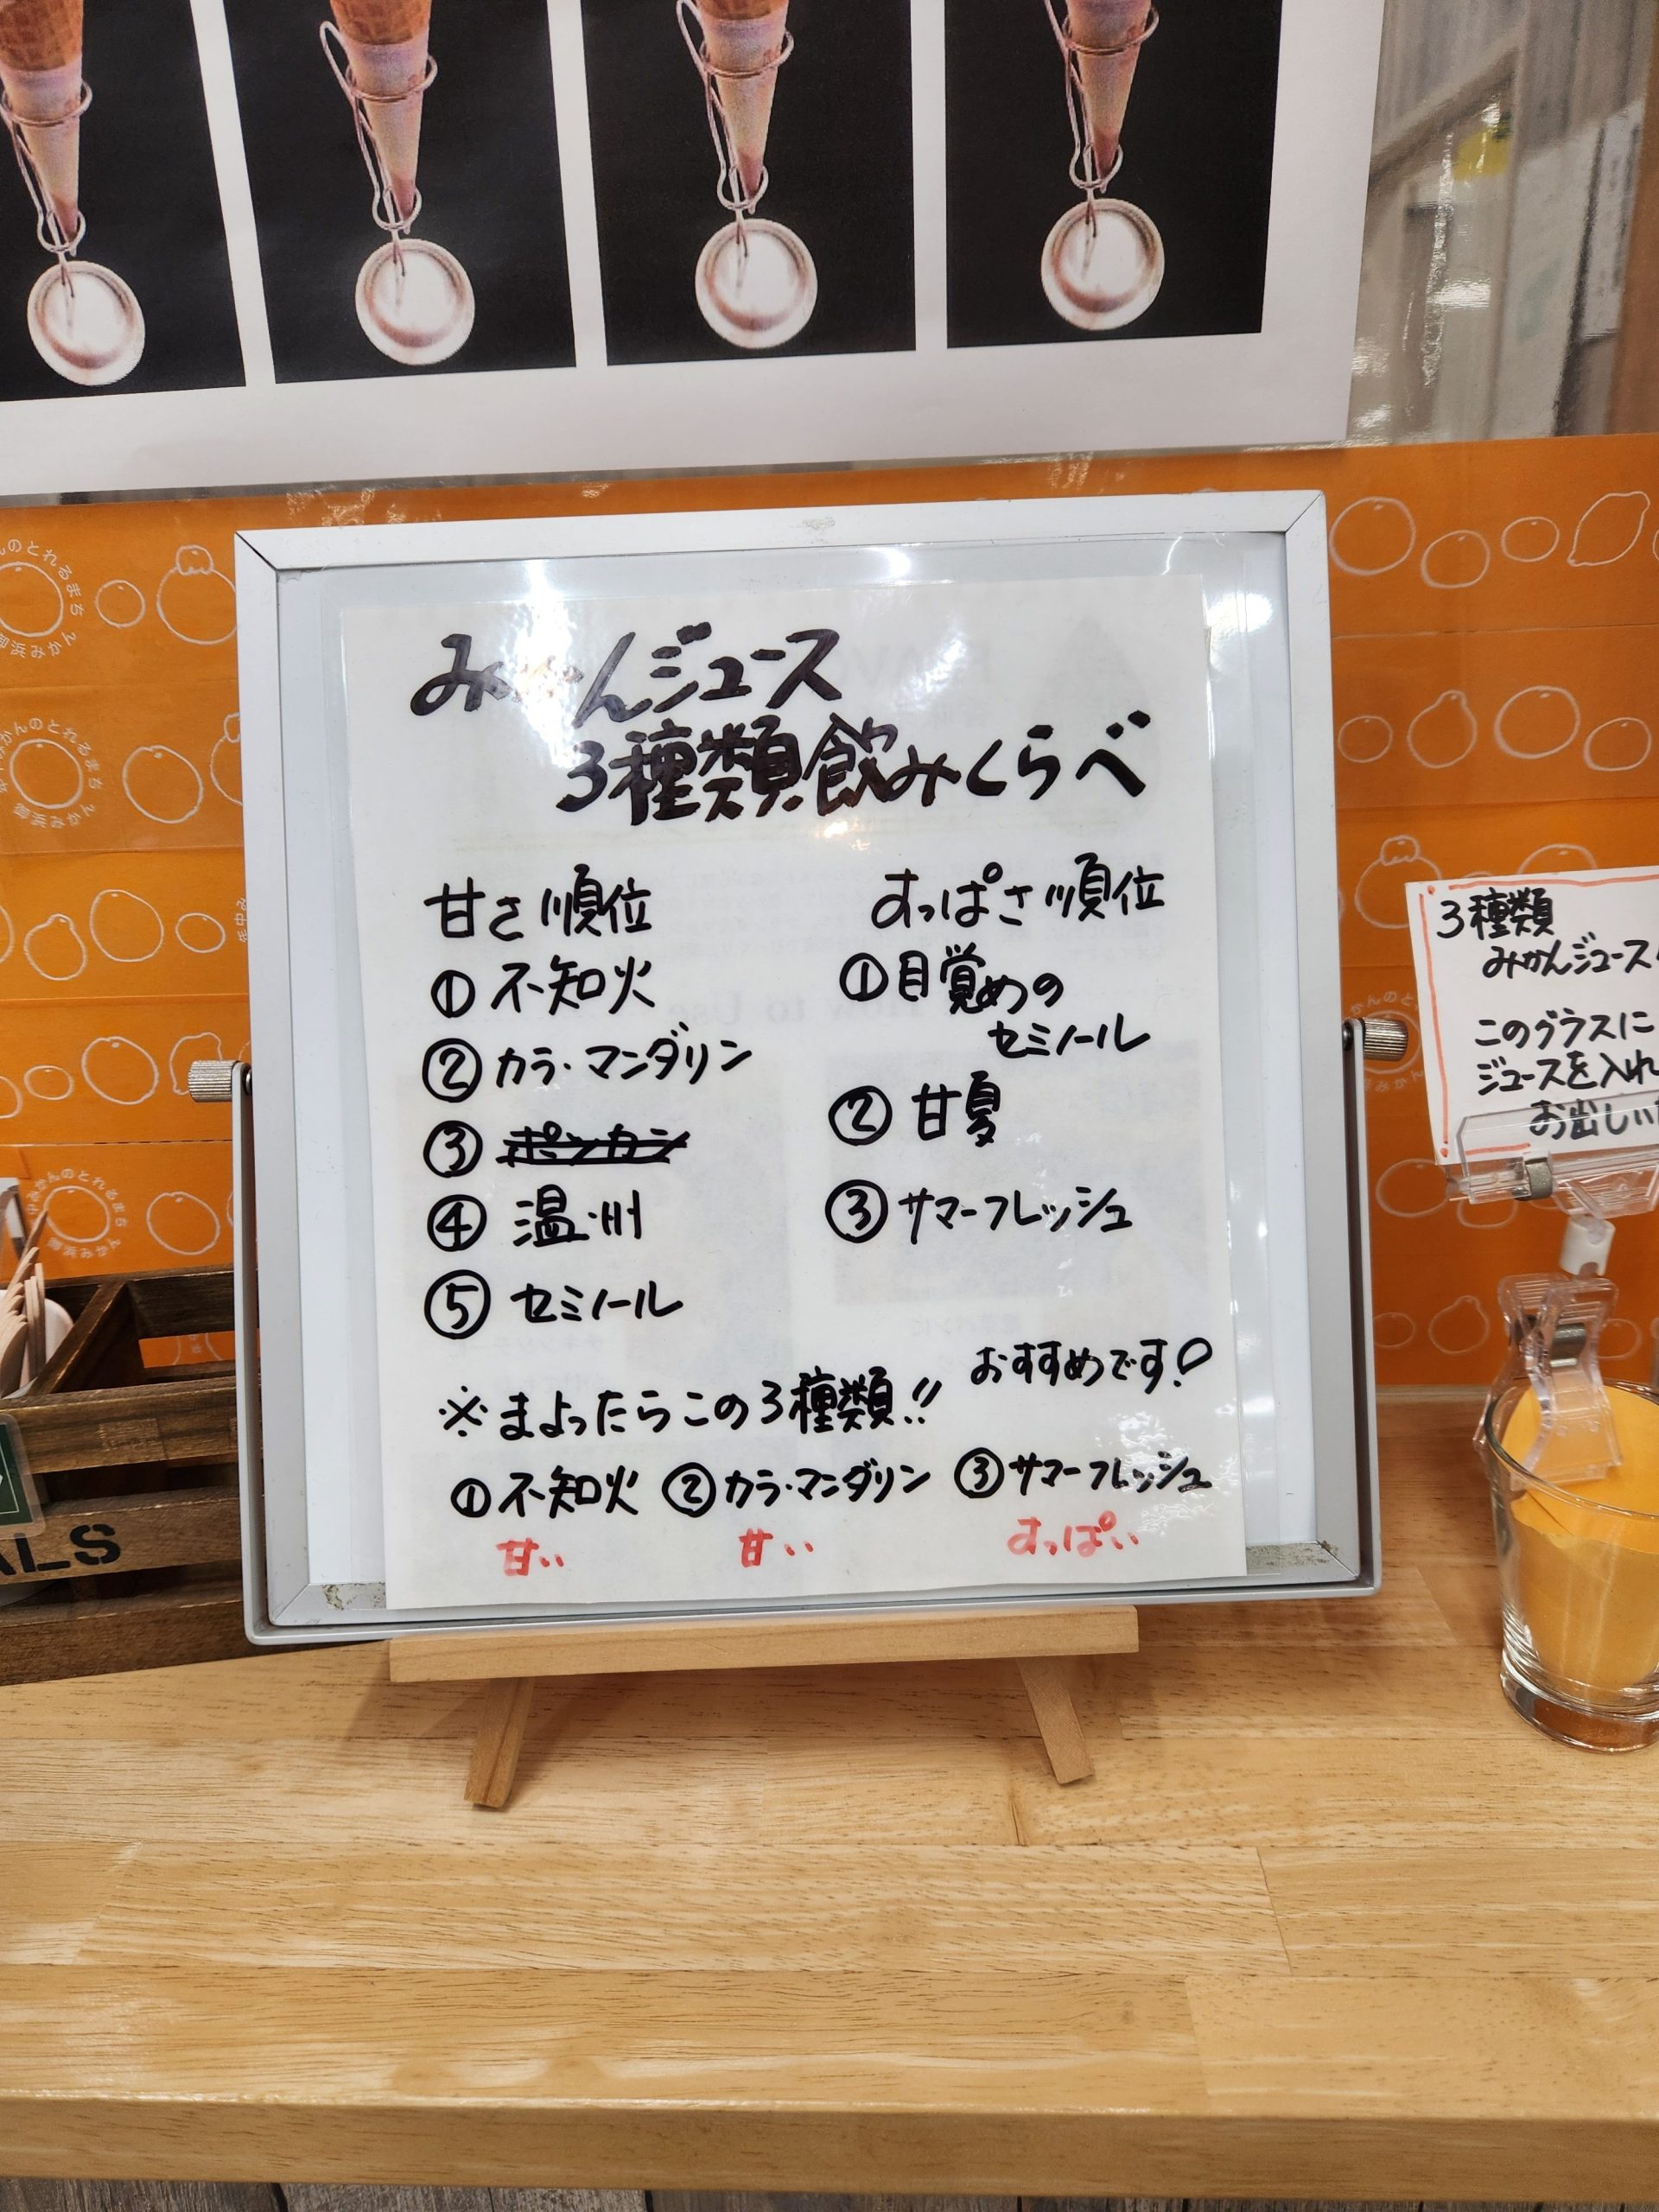 みかんジュース
3種類飲みくらべ
甘さ順位
① 不知火
② カラ・マンダリン
③ ポンカン
④ 温州
⑤ セミノール
すっぱさ順位
① 目覚めの
セミノール
② 甘夏
③ サマーフレッシュ
※まよったらこの3種類!! おすすめです!
① 不知火 ② カラ・マンダリン ③ サマーフレッシュ
甘い 甘い すっぱい
3種類
みかんジュース
このグラスに
ジュースを入れ
お出しい
みかんのとれるまち
御浜みかん
ALS